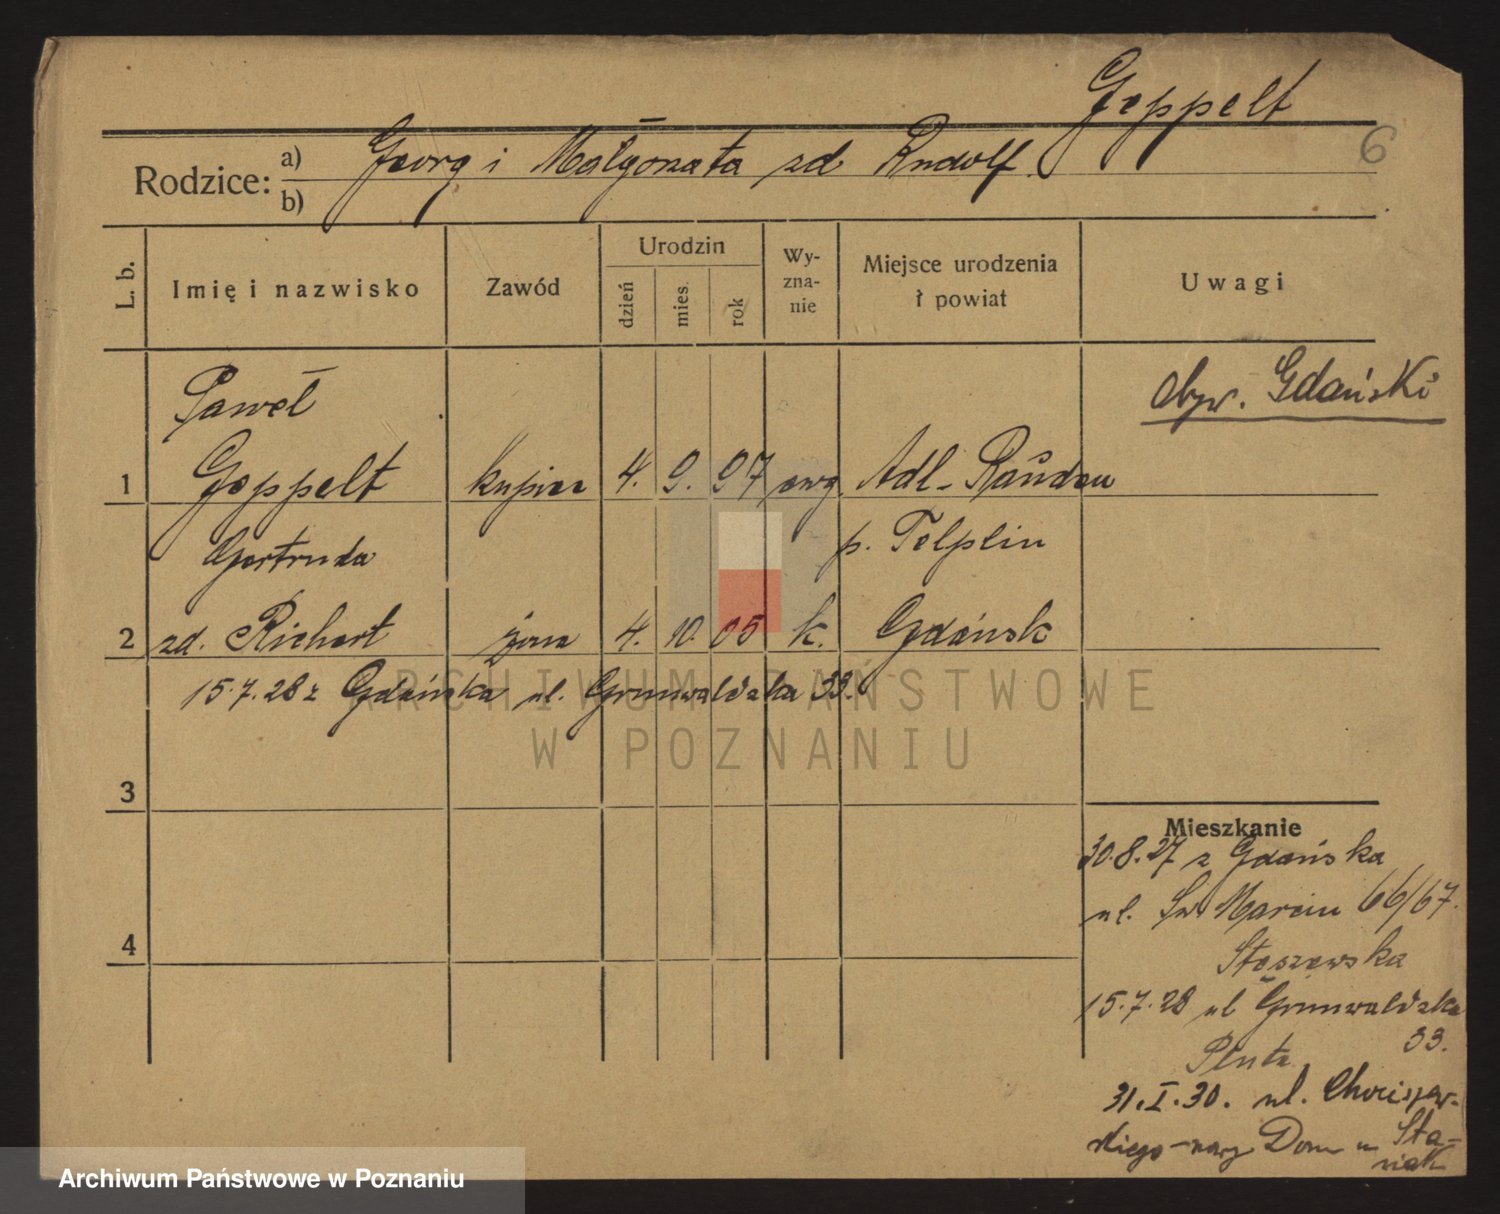 Goppelt
6
Rodzice:
a) Georg i Małgorzata zd Rudolf.
b)
L. b.
Imię i nazwisko
Zawód
Urodzin
dzień
mies.
rok
Wy-
zna-
nie
Miejsce urodzenia
i powiat
Uwagi
Paweł
obyw. Gdański
1 Goppelt kupiec 4. 9. 97 ewg. Adl-Rauden
Gertruda
p. Pelplin
2 zd. Richert żona 4. 10. 05 k. Gdańsk
15.7.28 z Gdańska ul. Grunwaldzka 33.
ARCHIWUM PAŃSTWOWE
W POZNANIU
3
Mieszkanie
30.8.27 z Gdańska
ul. Św Marcin 66/67.
4
Stęszewska
15.7.28 ul Grunwaldzka
33.
Pluta
31.I.30. ul. Chociszew-
skiego-nowy Dom u Sta-
niak
Archiwum Państwowe w Poznaniu